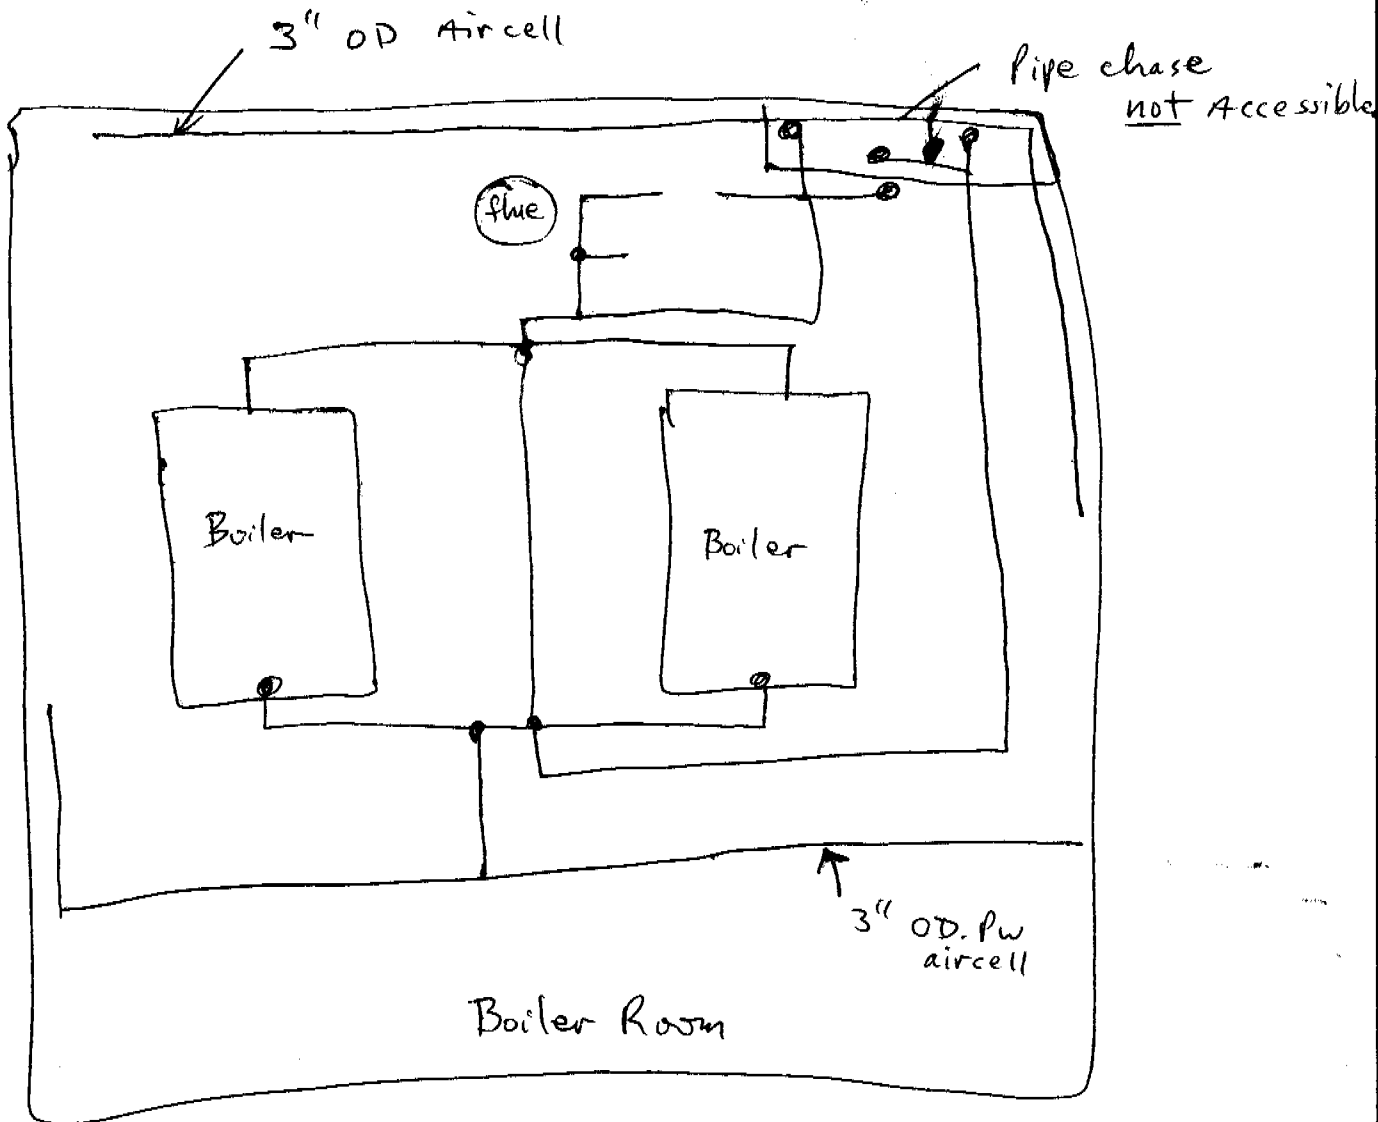 3" OD Aircell
Pipe chase
not Accessible
flue
Boiler
Boiler
3" OD. PW
aircell
Boiler Room